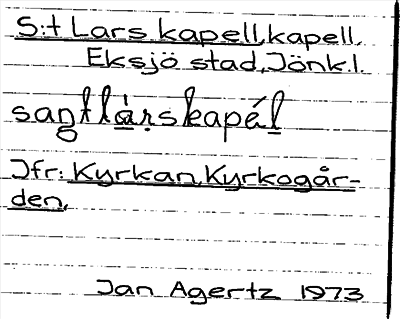 S:t Lars kapell, kapell,
Eksjö stad, Jönk.l.
sangtlárskapél
Jfr: Kyrkan, Kyrkogår-
den,
Jan Agertz 1973